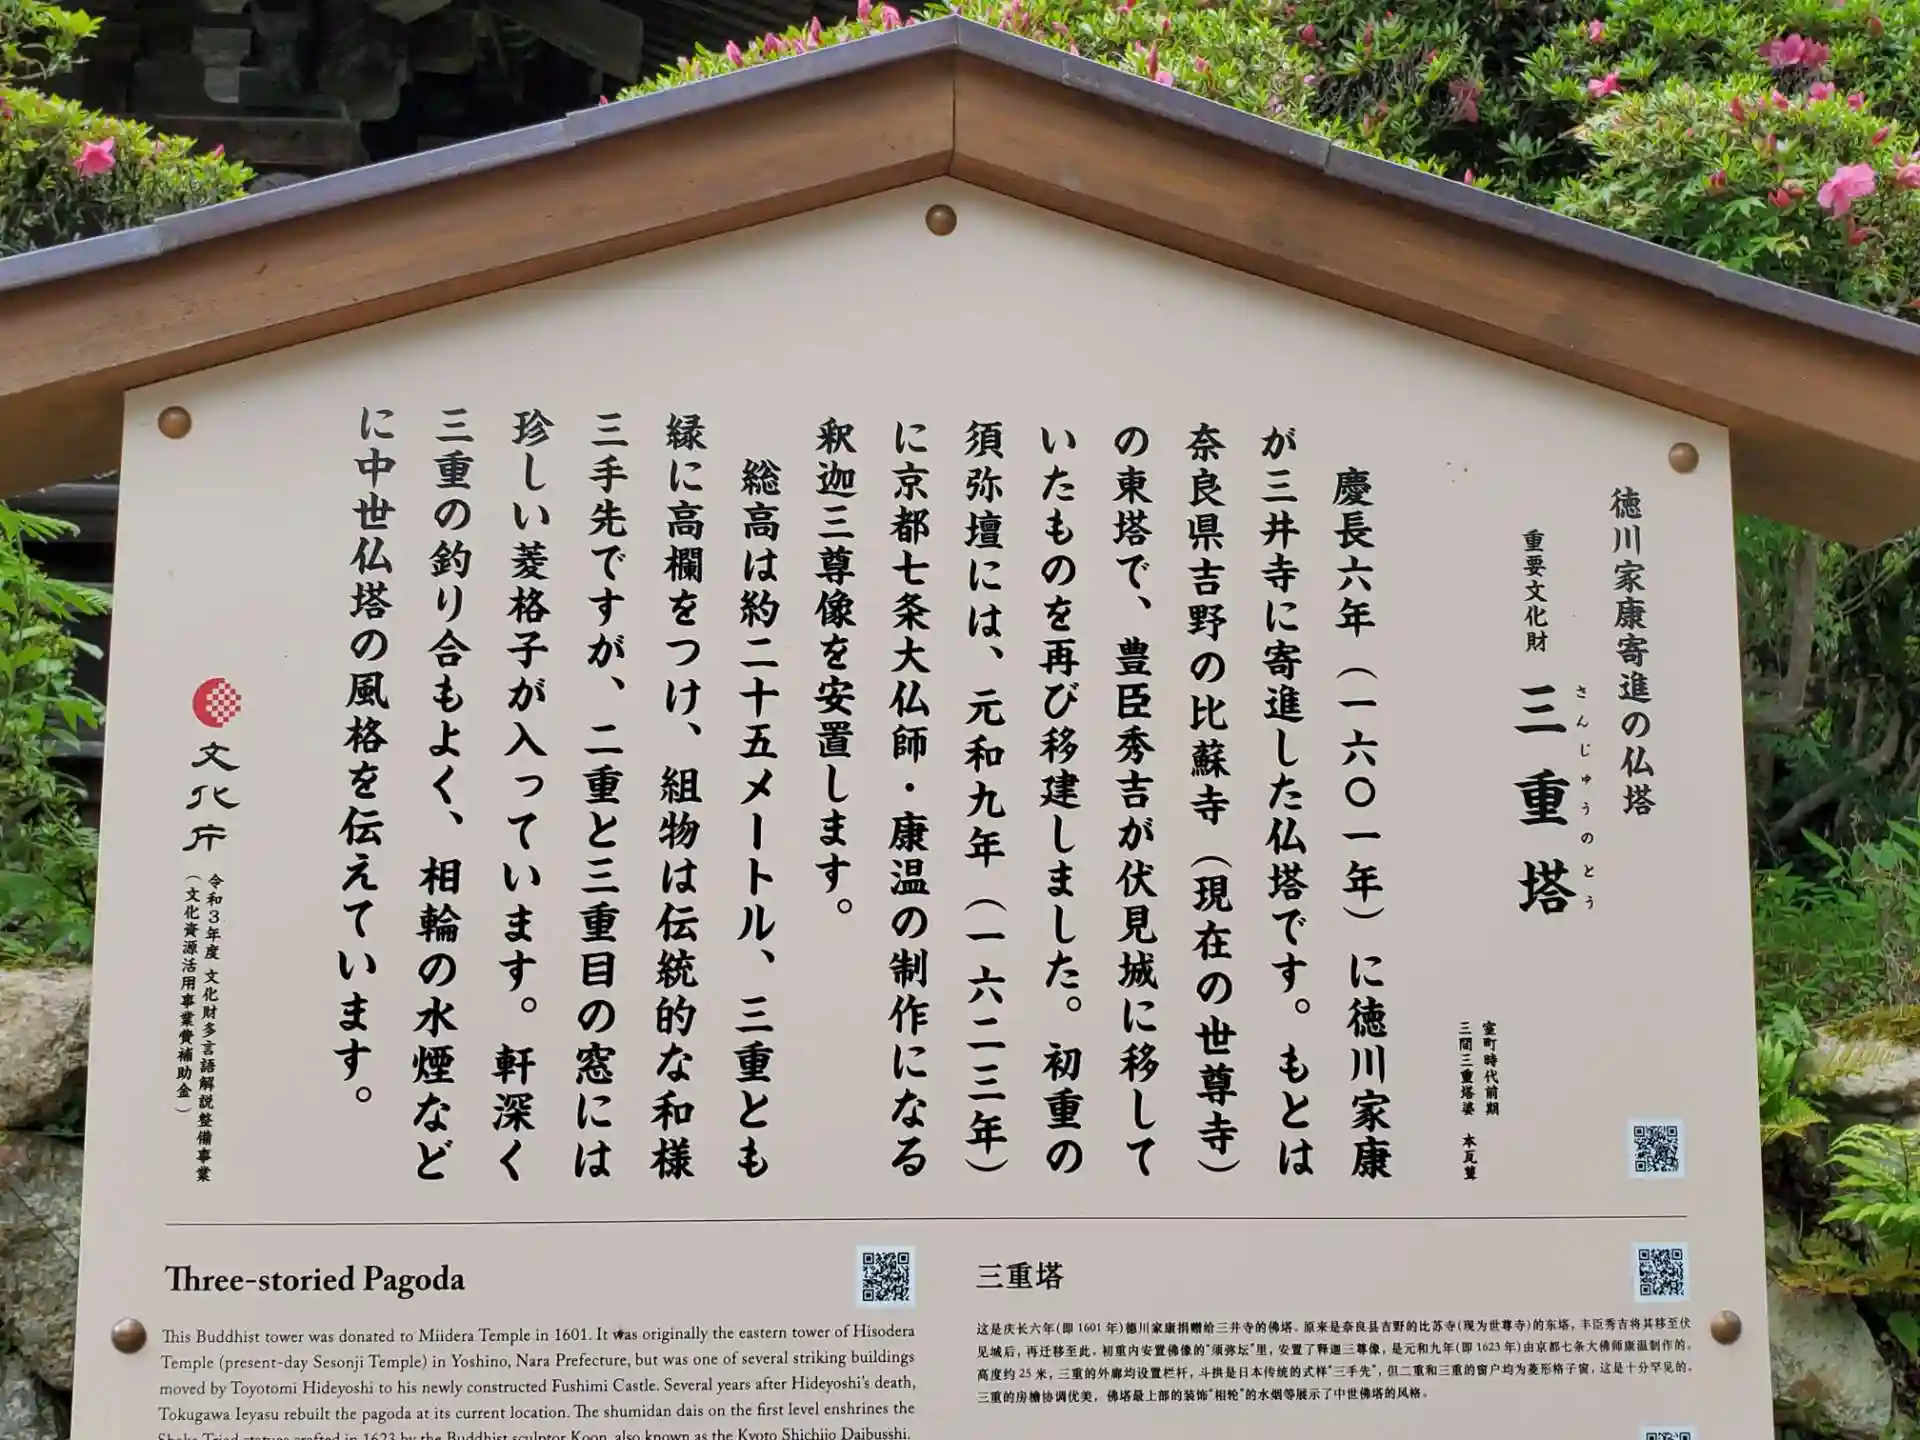 徳川家康寄進の仏塔
重要文化財 三重塔
さんじゅうのとう
室町時代前期
三間三重塔婆 本瓦葺
慶長六年(一六〇一年)に徳川家康
が三井寺に寄進した仏塔です。もとは
奈良県吉野の比蘇寺(現在の世尊寺)
の東塔で、豊臣秀吉が伏見城に移して
いたものを再び移建しました。初重の
須弥壇には、元和九年(一六二三年)
に京都七条大仏師・康温の制作になる
釈迦三尊像を安置します。
総高は約二十五メートル、三重とも
縁に高欄をつけ、組物は伝統的な和様
三手先ですが、二重と三重目の窓には
珍しい菱格子が入っています。軒深く
三重の釣り合もよく、相輪の水煙など
に中世仏塔の風格を伝えています。
文化庁
令和3年度 文化財多言語解説整備事業
(文化資源活用事業費補助金)
Three-storied Pagoda
This Buddhist tower was donated to Miidera Temple in 1601. It was originally the eastern tower of Hisodera
Temple (present-day Sesonji Temple) in Yoshino, Nara Prefecture, but was one of several striking buildings
moved by Toyotomi Hideyoshi to his newly constructed Fushimi Castle. Several years after Hideyoshi's death,
Tokugawa Ieyasu rebuilt the pagoda at its current location. The shumidan dais on the first level enshrines the
Shaka Triad statues crafted in 1623 by the Buddhist sculptor Koon, also known as the Kyoto Shichijo Daibusshi.
三重塔
这是庆长六年(即 1601 年)德川家康捐赠给三井寺的佛塔。原来是奈良县吉野的比苏寺(现为世尊寺)的东塔，丰臣秀吉将其移至伏
见城后，再迁移至此。初重内安置佛像的“须弥坛”里，安置了释迦三尊像，是元和九年(即 1623 年)由京都七条大佛师康温制作的。
高度约 25 米，三重的外廊均设置栏杆，斗拱是日本传统的式样“三手先”，但二重和三重的窗户均为菱形格子窗，这是十分罕见的。
三重的房檐协调优美，佛塔最上部的装饰“相轮”的水烟等展示了中世佛塔的风格。